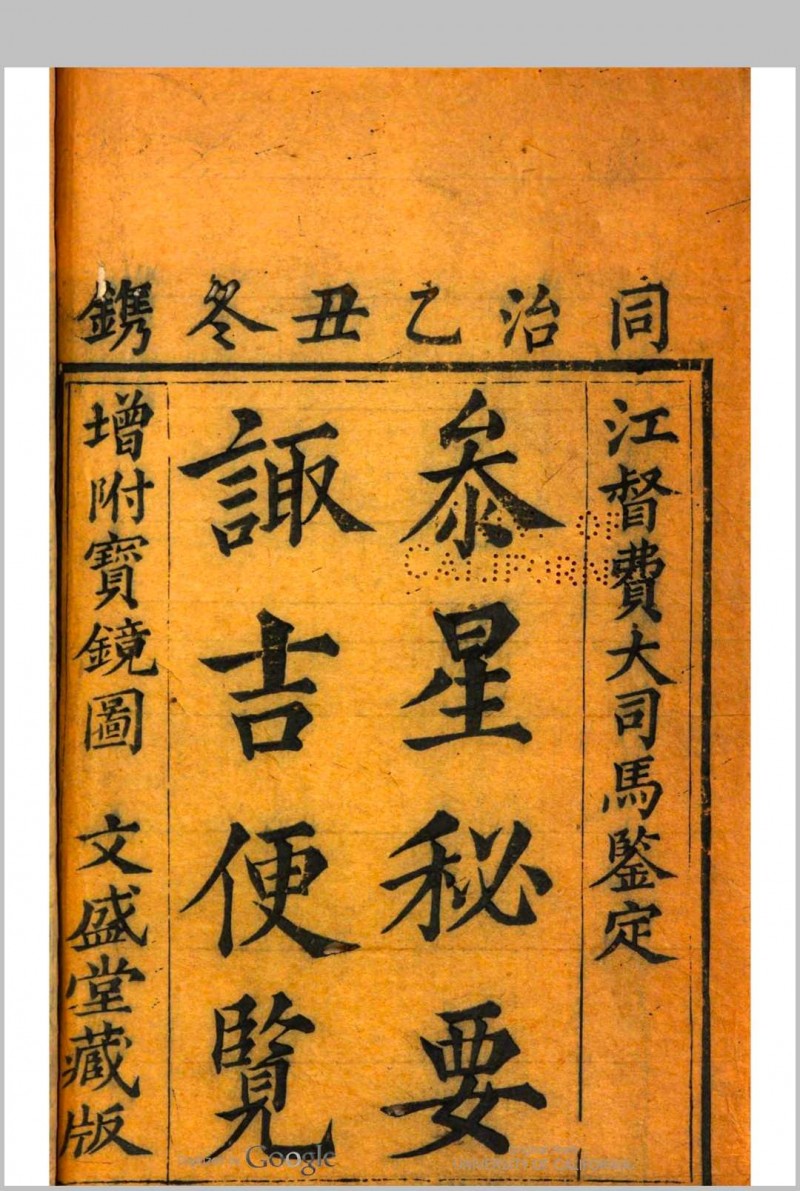 同治乙丑冬鐫
江督費大司馬鑒定
叅星秘要
諏吉便覽
增附寶鏡圖 文盛堂藏版
CALIFORN
Google
UNIVERSITY OF CALIFORNIA